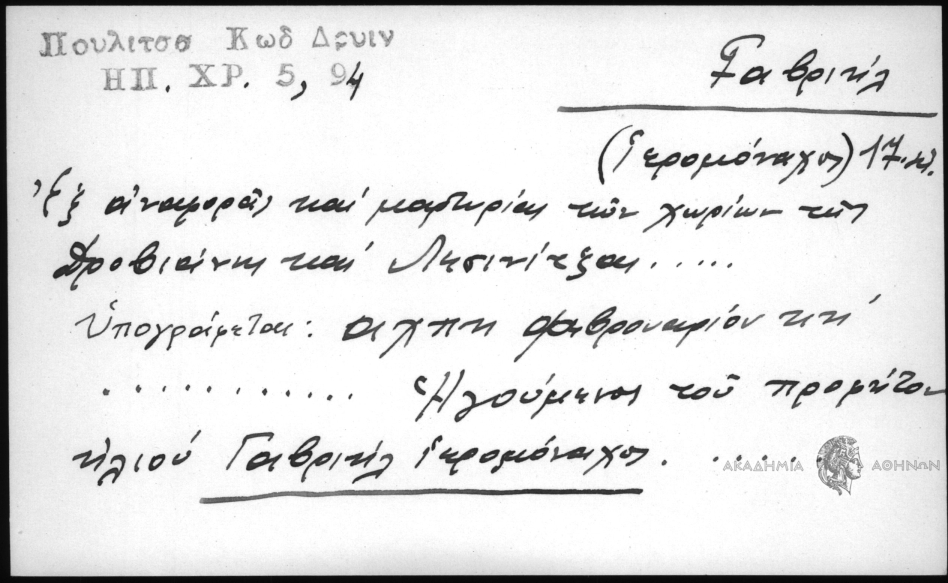 Πουλιτσα Κωδ Δρυιν
ΗΠ. ΧΡ. 5, 94
Γαβριήλ
(Ἱερομόναχος) 17. αἰ.
Ἐξ ἀναφορᾶς καὶ μαρτυρίας τῶν χωρίων τῆς
Δροβιάνης καὶ Λεσινίτζας.....
Ὑπογράφεται: αχπη φεβρουαρίου κή
............ Ἡγούμενος τοῦ προφήτου
ἠλιοῦ Γαβριήλ ἱερομόναχος.....
ΑΚΑΔΗΜΙΑ ΑΘΗΝΩΝ